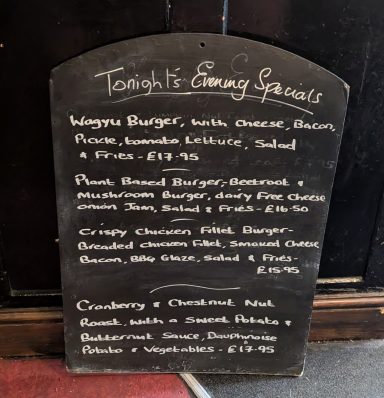 Tonight's Evening Specials
Wagyu Burger, with cheese, Bacon,
Pickle, tomato, Lettuce, Salad
& Fries - £17.95
Plant Based Burger - Beetroot &
Mushroom Burger, dairy Free Cheese
onion Jam, Salad & Fries - £16.50
Crispy Chicken Fillet Burger -
Breaded chicken Fillet, Smoked Cheese
Bacon, BBQ Glaze, Salad & Fries -
£15.95
Cranberry & Chestnut Nut
Roast, with a Sweet Potato &
Butternut Sauce, Dauphnoise
Potato & Vegetables - £17.95